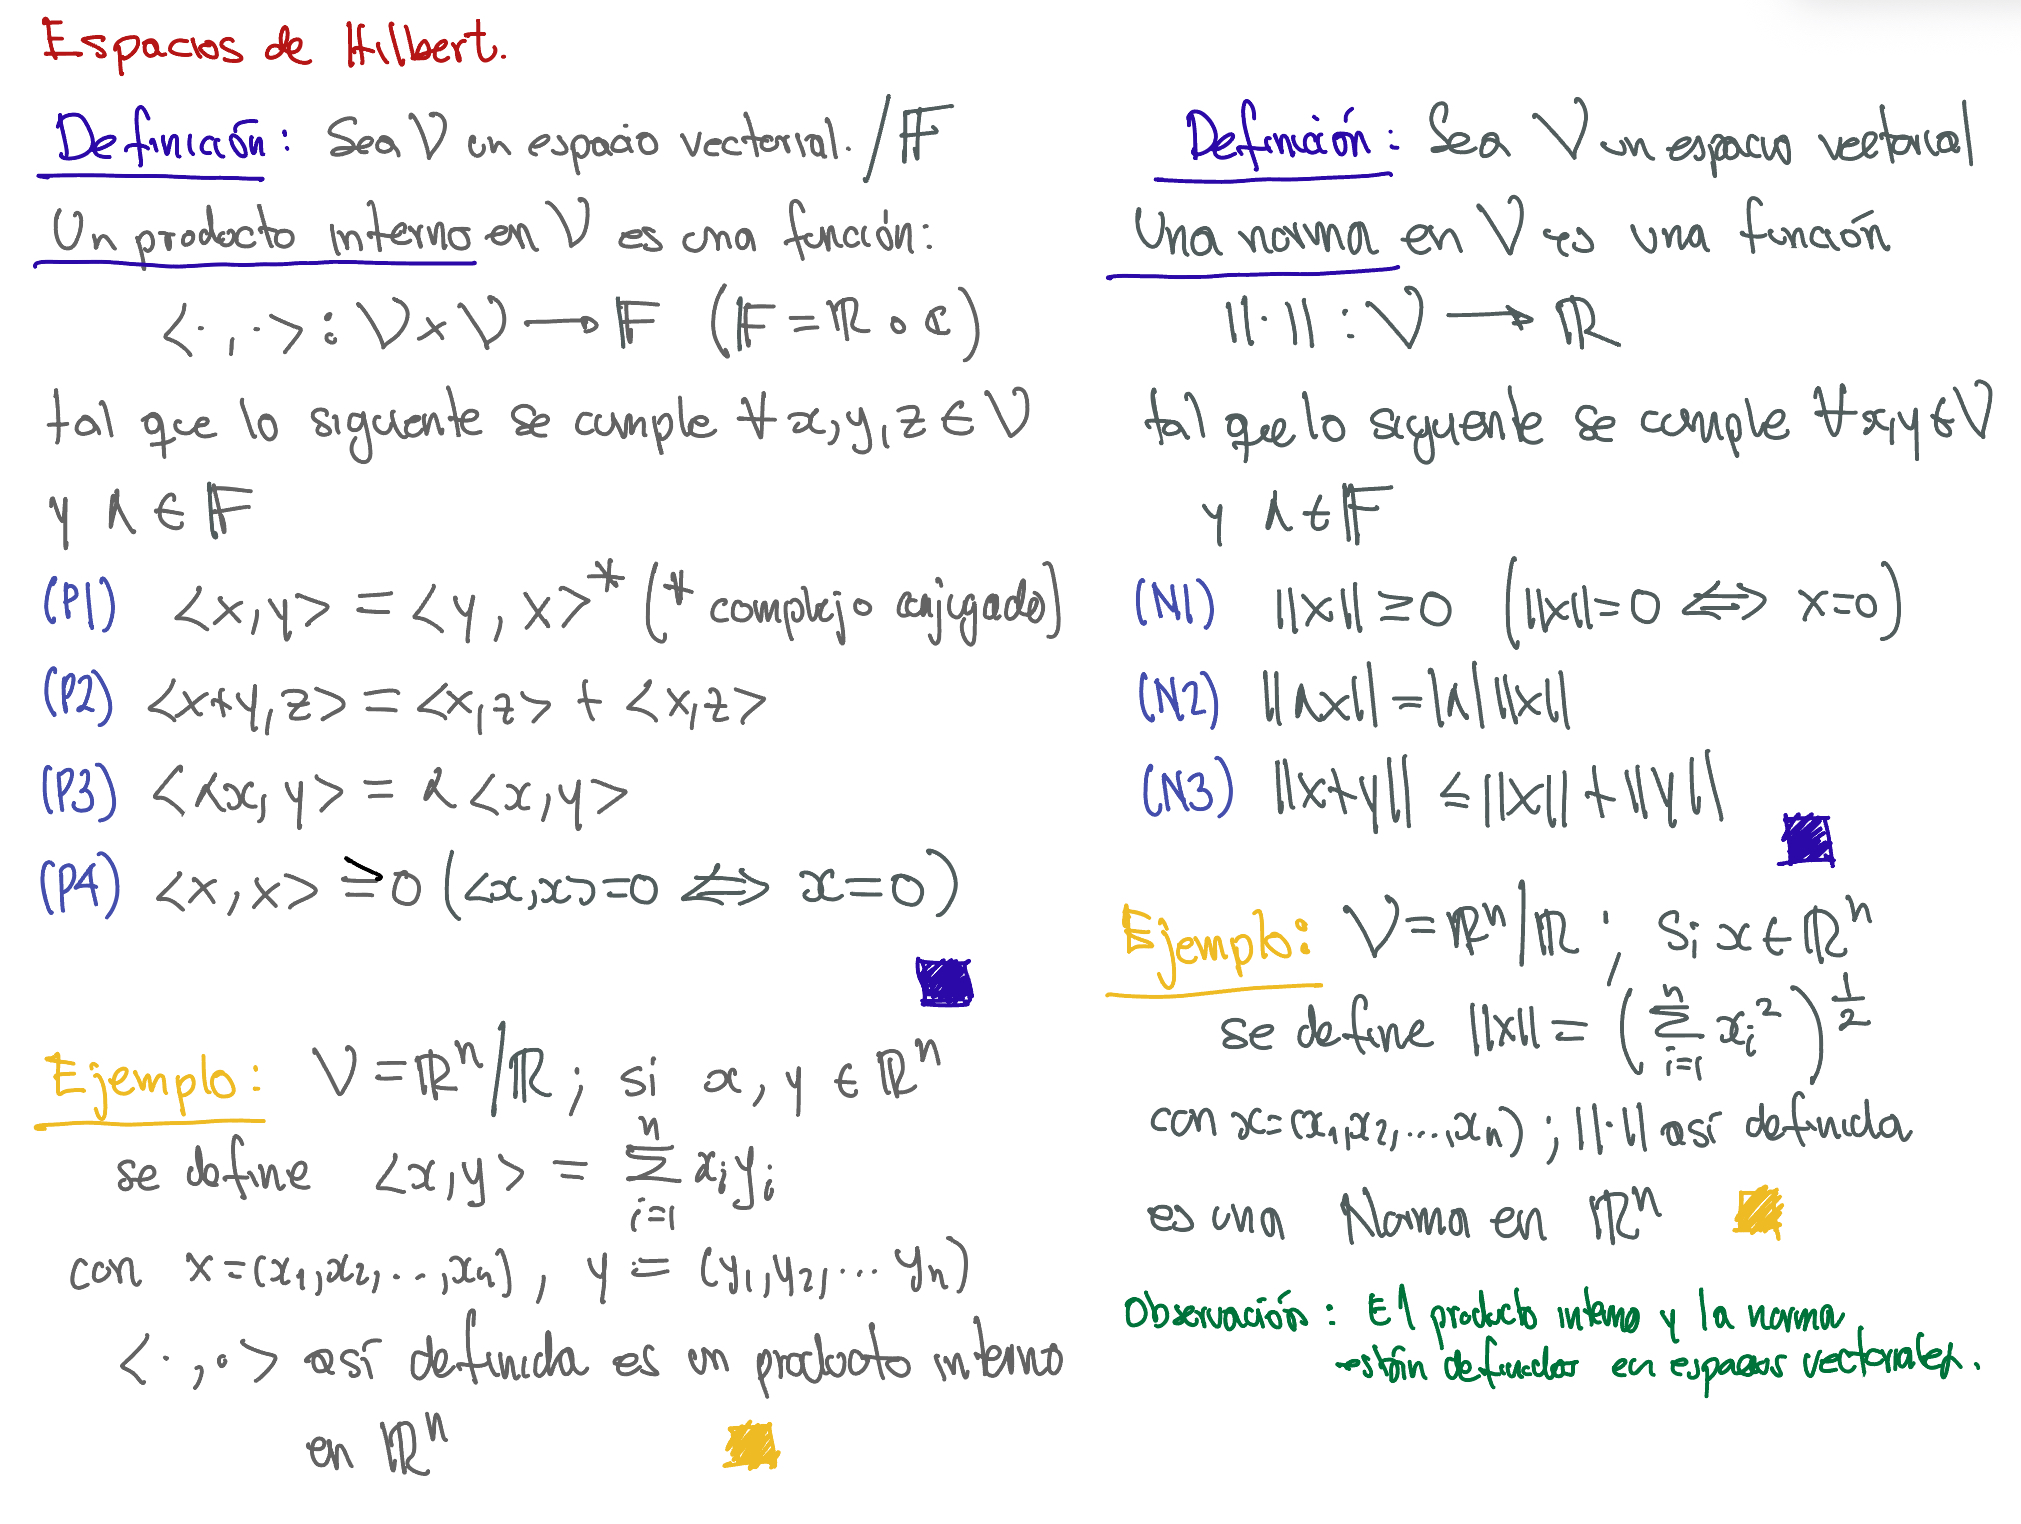 Espacios de Hilbert.
Definición: Sea V un espacio vectorial. / 𝔽
Un producto interno en V es una función:
<·,·> : V × V → 𝔽 (𝔽 = ℝ o ℂ)
tal que lo siguiente se cumple ∀ x, y, z ∈ V
y λ ∈ 𝔽
(P1) <x,y> = <y,x>* (* complejo conjugado)
(P2) <x+y,z> = <x,z> + <x,z>
(P3) <αx,y> = α<x,y>
(P4) <x,x> ≥ 0 (<x,x> = 0 ⟺ x = 0)
Ejemplo: V = ℝⁿ/ℝ ; si x, y ∈ ℝⁿ
se define <x,y> = Σ_{i=1}^{n} xᵢyᵢ
con x = (x₁,x₂,...,xₙ), y = (y₁,y₂,... yₙ)
<·,·> así definida es un producto interno
en ℝⁿ
Definición: Sea V un espacio vectorial
Una norma en V es una función
||·|| : V → ℝ
tal que lo siguiente se cumple ∀ x,y ∈ V
y λ ∈ 𝔽
(N1) ||x|| ≥ 0 (||x|| = 0 ⟺ x = 0)
(N2) ||λx|| = |λ| ||x||
(N3) ||x+y|| ≤ ||x|| + ||y||
Ejemplo: V = ℝⁿ/ℝ ; Si x ∈ ℝⁿ
se define ||x|| = (Σ_{i=1}^{n} xᵢ²)^{1/2}
con x = (x₁,x₂,...,xₙ) ; ||·|| así definida
es una Norma en ℝⁿ
Observación: El producto interno y la norma
están definidos en espacios vectoriales.